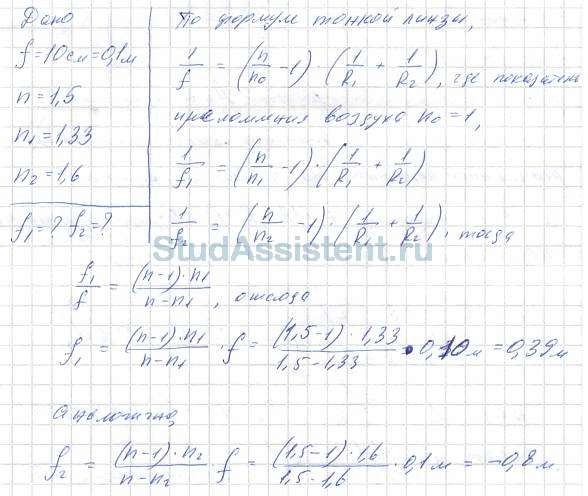 Дано
f=10см=0,1м
n=1,5
n₁=1,33
n₂=1,6
f₁=? f₂=?
По формуле тонкой линзы,
1/f = (n/n₀ -1)·(1/R₁ + 1/R₂), где показатель
преломления воздуха n₀=1,
1/f₁ = (n/n₁ -1)·(1/R₁ + 1/R₂)
1/f₂ = (n/n₂ -1)·(1/R₁ + 1/R₂), тогда
StudAssistent.ru
f₁/f = (n-1)·n₁/(n-n₁), отсюда
f₁ = (n-1)·n₁/(n-n₁) ·f = (1,5-1)·1,33/(1,5-1,33) · 0,10м = 0,39м
Аналогично,
f₂ = (n-1)·n₂/(n-n₂) ·f = (1,5-1)·1,6/(1,5-1,6) ·0,1м = -0,8м